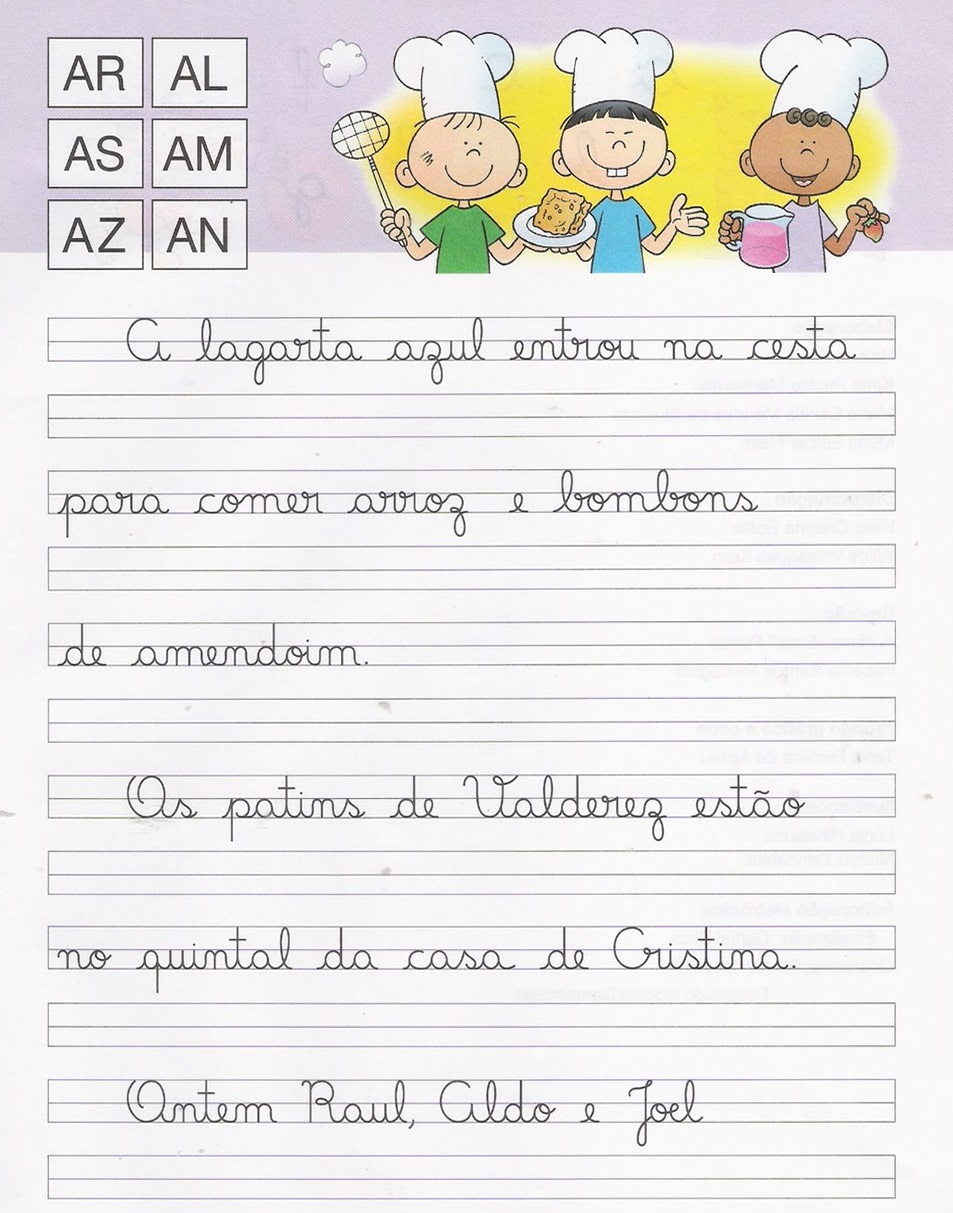 AR AL
AS AM
AZ AN
A lagarta azul entrou na cesta
para comer arroz e bombons
de amendoim.
Os patins de Valderez estão
no quintal da casa de Cristina.
Ontem Raul, Aldo e Joel